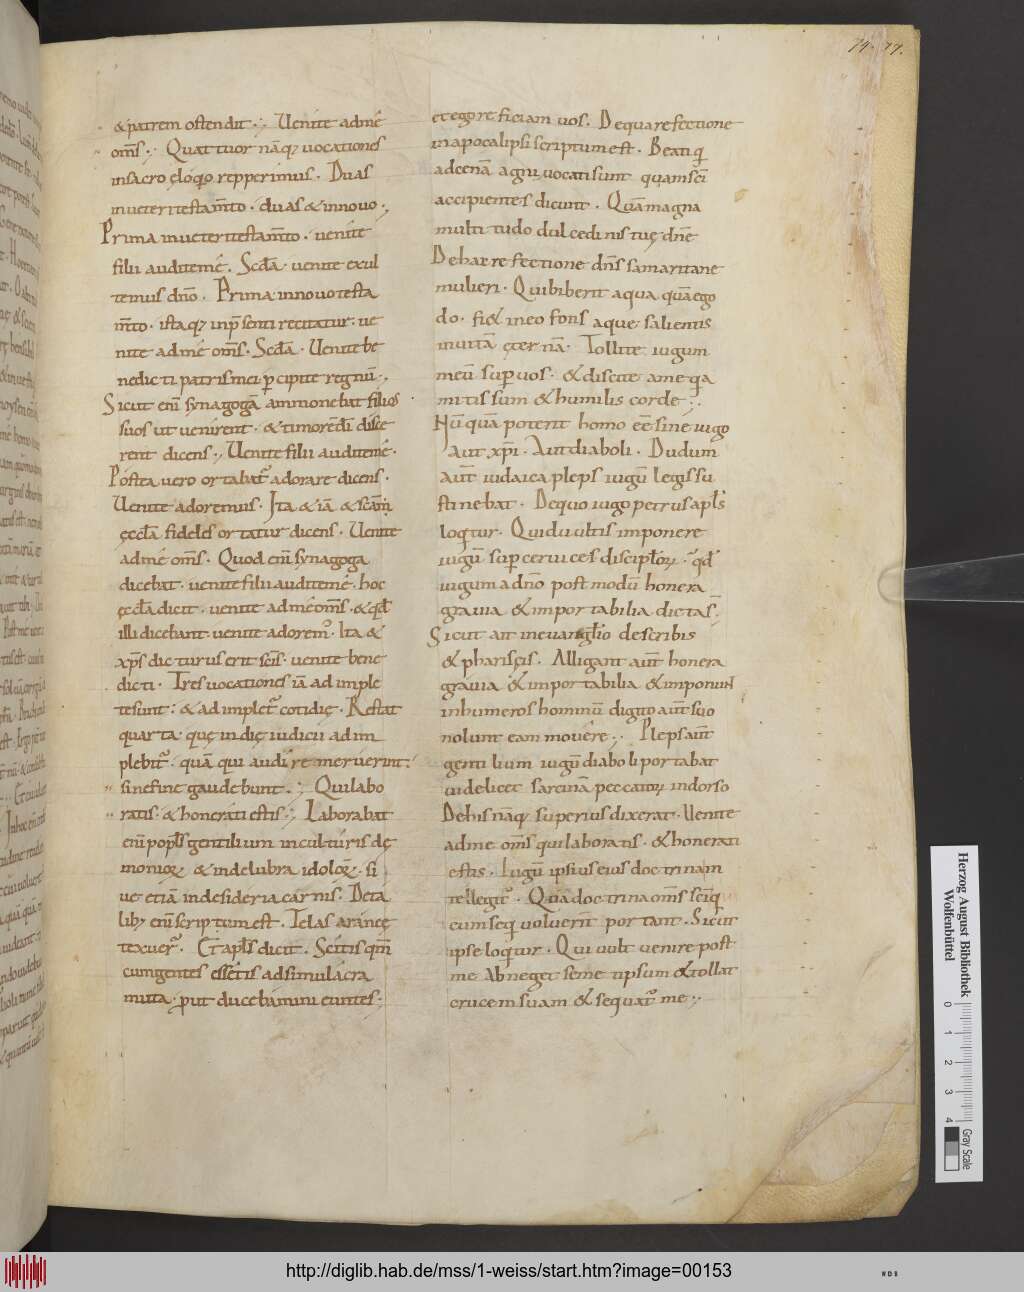 74. 77.
& patrem ostendit ·,· Uenite ad mé
om̅s ·,· Quattuor nāq; uocationes
in sacro ęloq̅o repperimus · Duas
in ueteri testam̅to · duas & in nouo ·,
Prima in ueteri testam̅to · uenite
filii audite mé · Scd̅a · uenite exul
temus dn̅o · Prima in nouo testa
m̅to · ista q; in p̅senti recitatur · ue
nite ad mé om̅s · Scd̅a · Uenite be
nedicti patris mei p̲cipite regnū ·,
Sicut eni̅ synagogā ammonebat filios
suos ut uenirent · & timorē dn̅i disce
rent dicens ·,· Uenite filii audite mé ·
Postea uero ortabat᷑ adorare dicens ·
Uenite adoremus · Ita & iā & scām
ęccl̅a fideles ortatur dicens · Uenite
ad mé om̅s · Quod eni̅ synagoga
dicebat · uenite filii audite mé · hoc
ęccl̅a dicit · uenite ad mé om̅s · & qd̅
illi dicebant uenite adorem᷒ · Ita &
xp̅s dicturus erit sc̅is · uenite bene
dicti · Tres uocationes iā adimple
te sunt : & adimplet᷑ cotidię · Restat
quarta quę in dię iudicii adim
plebit᷑ · quā qui audire meruerint :
sine fine gaudebunt ·,· Qui labo
ratis · & honerati estis ·,· Laborabat
eni̅ popl̅s gentilium in culturis dę
monioꝝ & in delubra idoloꝝ · si
ue etiā in desideria carnis · De ta
lib; eni̅ scriptum est · Telas aranęę
texuer᷑ · Et apl̅s dicit · Scitis qm̅
cum gentes essetis ad simulacra
muta · prout ducebamini euntes ·,
et ego reficiam uos · De qua refectione
in apocalipsi scriptum est · Beati q̅
ad cenā agni uocati sunt quam sc̅i
accipientes dicunt · Quā magna
multitudo dulcedinis tuę dn̅e
De hac refectione dn̅s samaritane
mulieri · Qui biberit aqua quā ego
do · fi& in eo fons aque salientis
in uitā ęternā · Tollite iugum
meū sup̲ uos · & discite a me q̅a
mitis sum & humilis corde ·,·
Nū quā poterit homo eē sine iugo
Aut xp̅i · Aut diaboli · Dudum
aut̅ iudaica pleps iugū legis su
stinebat · De quo iugo petrus apl̅s
loq̅tur · Quid uultis imponere
iugū sup̲ ceruices discipl̅oꝝ · qd̅
iugum a dn̅o postmodū honera
grauia & importabilia dictas ·,
Sicut ait in euanglio de scribis
& phariseis · Alligant aut̅ honera
grauia & importabilia & imponunt
in humeros hominū digito aut̅ suo
nolunt eam mouere ·,· Pleps aut̅
gentilium iugū diaboli portabat
uidelicet sarcinā peccatoꝝ in dorso
De his nāq; superius dixerat · Uenite
ad me om̅s qui laboratis · & honerati
estis · Iugū ipsius eius doctrinam
tellegit᷑ · Quā doctrina om̅s seu̅ q̅
eum seq̅ uoluerit̅ portant · Sicut
ipse loq̅tur · Qui uult uenire post
me Abneget seme tipsum & tollat
crucem suam & sequat᷑ me ·,·
Herzog August Bibliothek
Wolfenbüttel
0 1 2 3 4
Gray Scale
http://diglib.hab.de/mss/1-weiss/start.htm?image=00153